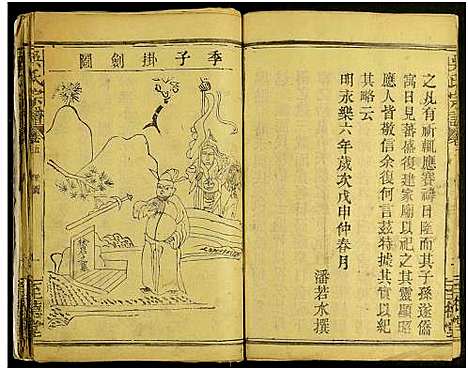 之凡有祈輒應賽禱日隆而其子孫遂僑
寓日見蕃盛復建家廟以祀之其靈顯昭
應人皆敬信余復何言茲特據其實以紀
其略云
明永樂六年歲次戊申仲春月
潘若水撰
季子掛劍圖
吳氏宗譜
至德堂